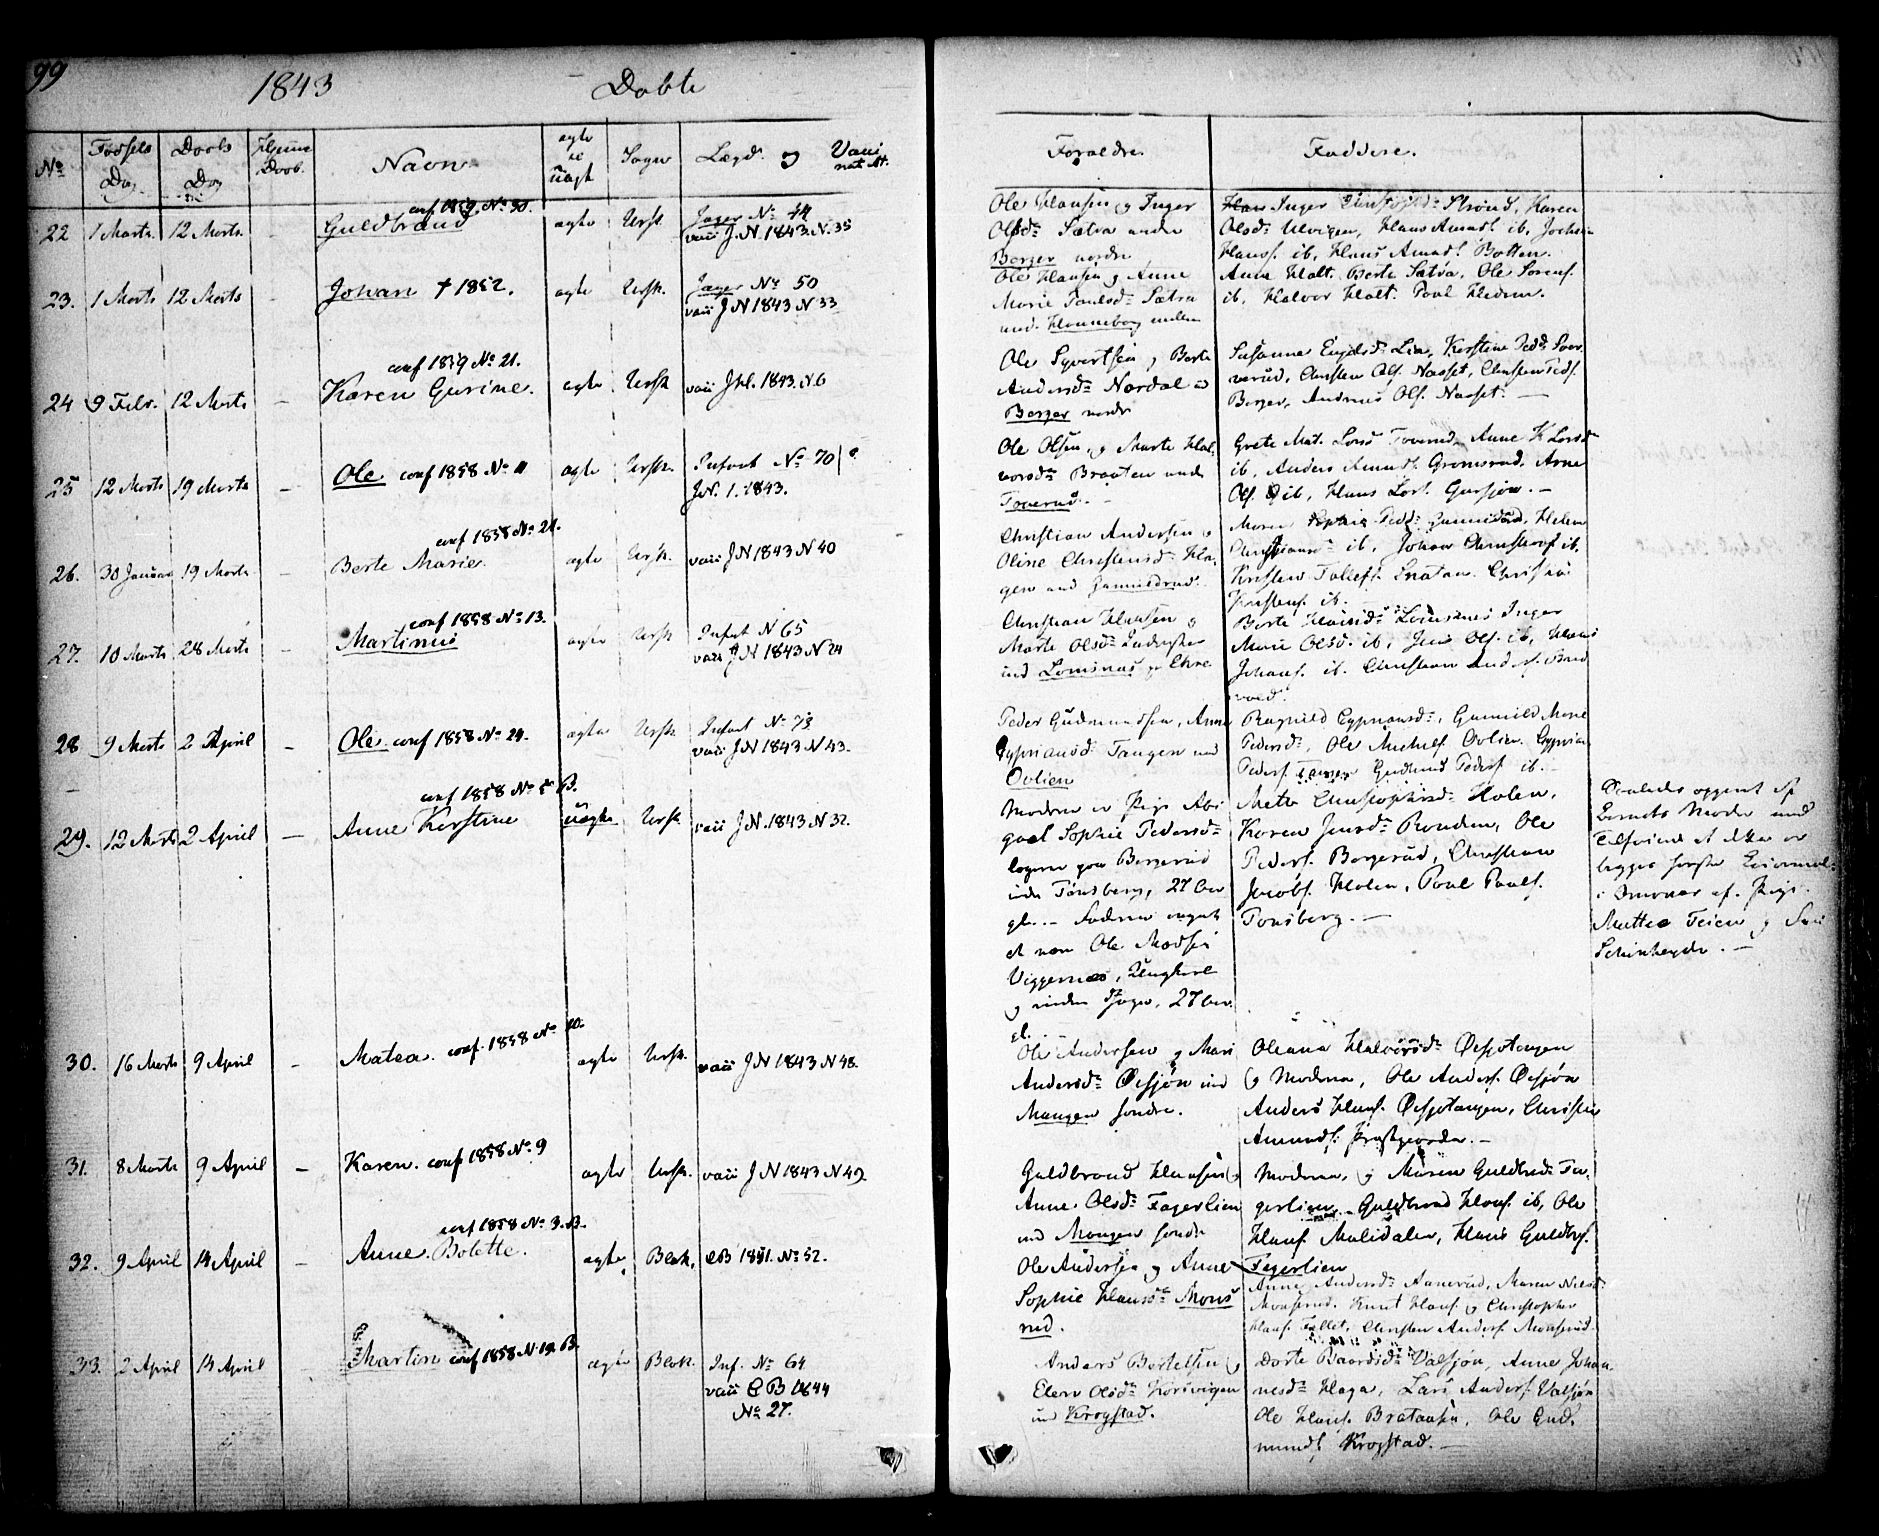 99
1843 Døbte
No Fødsels Dag Daabs Dag Hjemme Daab Navn ægte el uægt Sogn Lægd og Vacci nat At.
Forældre. Faddere.
22 1 Marts 12 Marts - Guldbrand conf 1859 No 30. ægte Ursk. Jager No 44
vacc J.N. 1843. N. 35
Ole Hansen og Inger
Olsdr Sætra under
Berger nordre
Inger Strønd, Karen
Olsdr Ulvigen, Hans Amundf ib, Jochum
Hansf. ib, Hans Amundf. Botten.
23. 1 Marts 12 Marts - Johan † 1852. ægte Ursk. Jager No 50
vacc J N 1843 N 33
Ole Hansen og Anne
Marie Paulsdr Sætra
und. Honneborg mellem
Anne Halt. Berte Sætra, Ole Sørensf.
ib, Halvor Halt. Poul Hedem.
24 9 Febr. 12 Marts - Karen Gurine. conf 1859 No 21. ægte Ursk vacc J N. 1843. N. 6
Ole Syvertsen og Berte
Andersdr Nordal
Berger nordre
Susanna Engelsdr Lia, Kerstine Pedsdr Sver
verud, Christen Olf. Nasset, Christen Pedf.
Berger, Andreas Olf. Nasset. -
25 12 Marts 19 Marts - Ole conf 1858 No 11 ægte Ursk. Infant No 70
J.N. 1. 1843.
Ole Olsen, og Marte Hal
vorsdr Braaten und
Toverud. -
Grete Mat. Lorsd Toverud, Anne K Lorsdr
ib, Anders Amundf. Gromsrud, Arne
Olf. ib, Hans Lorf. Gursjøen. -
26. 30 Januar 19 Marts - Berte Marie. conf 1858 No 21. ægte Ursk. vacc J N 1843 N 40
Christian Andersen og
Oline Christensdr Ha
gen und
Maren Sophie Pedsdr Helene
Christiansdr ib, Johan Christianf ib,
Kristen Tollefs. Snatan. Christian
Kristenf. ib.
27. 10 Marts 28 Marts - Martinus conf 1858 No 13. ægte Ursk Infant N 65
vacc J N 1843 N 24
Christian Hansen og
Marte Olsdr
und Lomsnæs
Berte Hansdr Lomsnæs Inger
Marie Olsd. ib, Jens Olf. ib, Hans
Johanf. ib. Christian Andersf.
28 9 Marts 2 April - Ole conf 1858 No 24. ægte Ursk Infant No 73
vacc J N 1843 N 43.
Peder Gudmundsen, Anne
Cypriansdr Tangen und
Ovlien
Ragnild Cypriansdr, Gunild Marie
Pedersdr, Ole Michelf. Ovlien. Cyprian
Pedersf. Tangen Gudmund Pedersf ib. -
29. 12 Marts 2 April - Anne Kerstine conf 1858 No 5 B. uægte Ursk vacc J.N. 1843 N 32.
Moderen er Pige Abi
gael Sophie Pedersdr
logerer paa Bergerud
under Tonsberg, 27 Aar
gl. - Faderen angivet
at være Ole Madsen
Viggernæs, Ungkarl
og inden Sogn, 27 Aar.
gl.
Mette Christophersdr Holen,
Karen Jensdr Ronden, Ole
Pedersf. Bergerud, Christian
Jacobsf. Holen, Poul Poulf.
Tonsberg. -
Saaledes opgivet af
Barnets Moder med
Tilføiende at dette er
begges første Leiermaal
af Pige
Matthea Teien og
30. 16 Marts 9 April - Matea. conf. 1858 No 10. ægte Ursk. vacc J N 1843 N 48.
Ole Andersen og Mari
Andersdr Øisjøen und
Mangen søndre.
Oleana Halvorsdr Øisjøtangen
og Moderen, Ole Andersf. Øisjøen
Anders Hansf. Øisjøtangen, Christen
Amundf. Præstgaarden. -
31. 8 Marts 9 April - Karen. conf 1858 No 9 ægte Ursk. vacc J N 1843 N 49.
Guldbrand Hansen og
Anne Olsdr Fagerlien
und Mangen søndre
Moderen, og Maren Guldbrdr Fa
gerlien, Guldbrand Hansf. ib, Ole
Hansf. Malidalen, Hans Guldbrf.
Fagerlien
32. 9 April 14 April - Anne Bolette. conf 1858 No 3. B. ægte Blak. C B 1851. No 52.
Ole Andersen og Anne
Sophie Hansdr Mons
rud.
Anne Andersdr Aanerud, Maren Nilsdr
Monsrud. Knut Hansf. og Christopher
Hansf. Christen Andersf. Monsrud.
33. 2 April 14 April Martin conf 1858 N. 19. B. ægte Blak. Inf. No 64
vacc C B 1844
No 27.
Anders Bertelsen og
Elen Olsdr Korsvigen
und Krogstad.
Dorte Baardsdr Valsjøn, Anne Johan
nesdr Haga, Lars Andersf. Valsjøn
Ole Hansf. Brataasen, Ole Gud
mundf. Krogstad. -